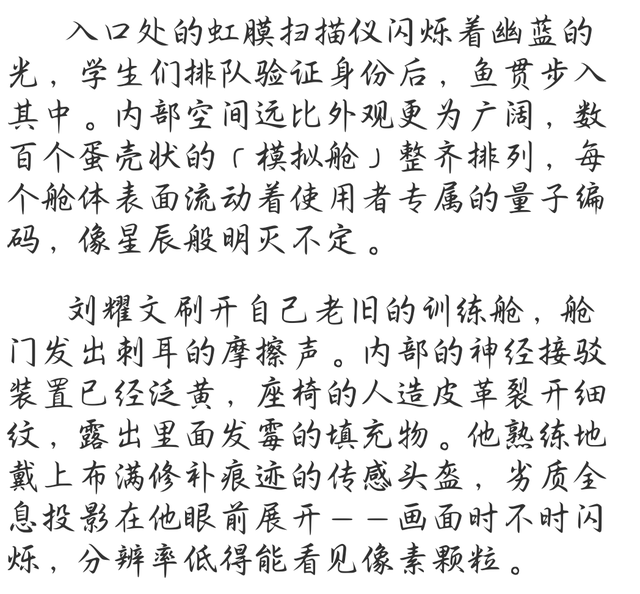 入口处的虹膜扫描仪闪烁着幽蓝的
光，学生们排队验证身份后，鱼贯步入
其中。内部空间远比外观更为广阔，数
百个蛋壳状的「模拟舱」整齐排列，每
个舱体表面流动着使用者专属的量子编
码，像星辰般明灭不定。
刘耀文刷开自己老旧的训练舱，舱
门发出刺耳的摩擦声。内部的神经接驳
装置已经泛黄，座椅的人造皮革裂开细
纹，露出里面发霉的填充物。他熟练地
戴上布满修补痕迹的传感头盔，劣质全
息投影在他眼前展开——画面时不时闪
烁，分辨率低得能看见像素颗粒。